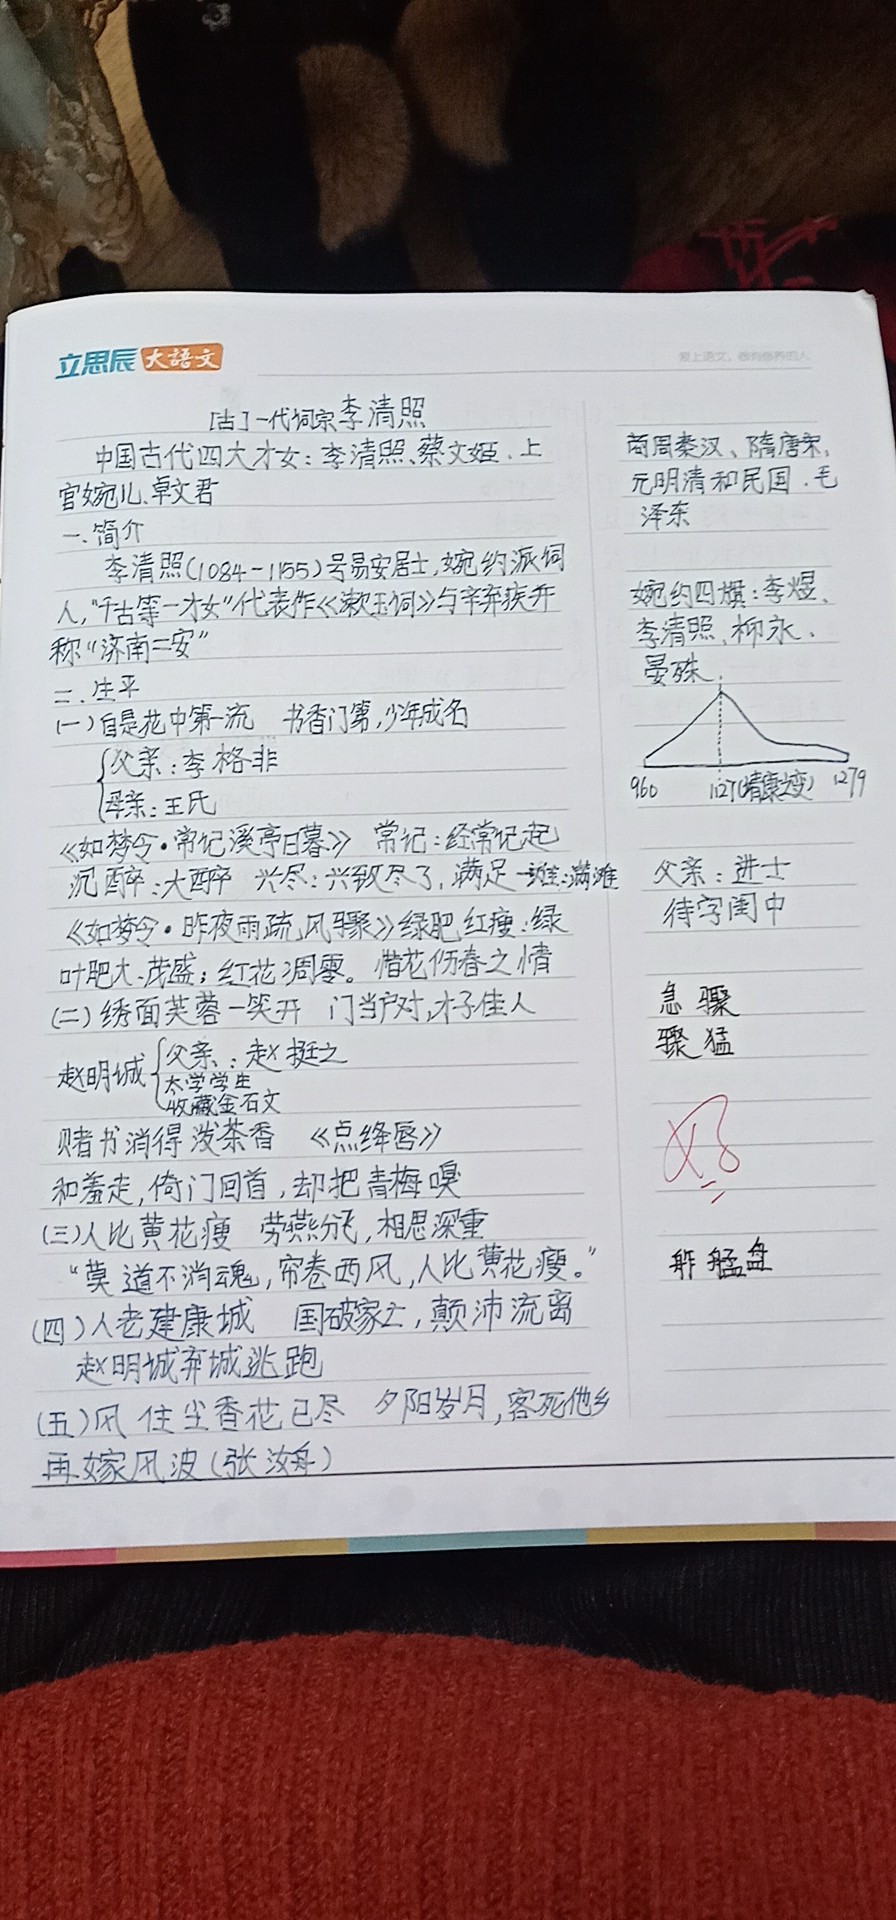 立思辰大語文
爱上语文,做有修养的人
[古]一代词宗李清照
中国古代四大才女:李清照、蔡文姬、上
官婉儿、卓文君
一、简介
李清照(1084-1155)号易安居士,婉约派词
人,“千古第一才女”代表作《漱玉词》与辛弃疾并
称“济南二安”
二、生平
(一)自是花中第一流 书香门第,少年成名
父亲:李格非
母亲:王氏
《如梦令·常记溪亭日暮》 常记:经常记起
沉醉:大醉 兴尽:兴致尽了,满足 一滩:满滩
《如梦令·昨夜雨疏风骤》绿肥红瘦:绿
叶肥大、茂盛;红花凋零。惜花伤春之情
(二)绣面芙蓉一笑开 门当户对,才子佳人
赵明诚
父亲:赵挺之
太学学生
收藏金石文
赌书消得泼茶香 《点绛唇》
和羞走,倚门回首,却把青梅嗅
(三)人比黄花瘦 劳燕分飞,相思深重
“莫道不消魂,帘卷西风,人比黄花瘦。”
(四)人老建康城 国破家亡,颠沛流离
赵明诚弃城逃跑
(五)风住尘香花已尽 夕阳岁月,客死他乡
再嫁风波(张汝舟)
商周秦汉、隋唐宋,
元明清和民国、毛
泽东
婉约四旗:李煜、
李清照、柳永、
晏殊
960 1127(靖康之变) 1279
父亲:进士
待字闺中
急骤
骤猛
好
舴艋盘